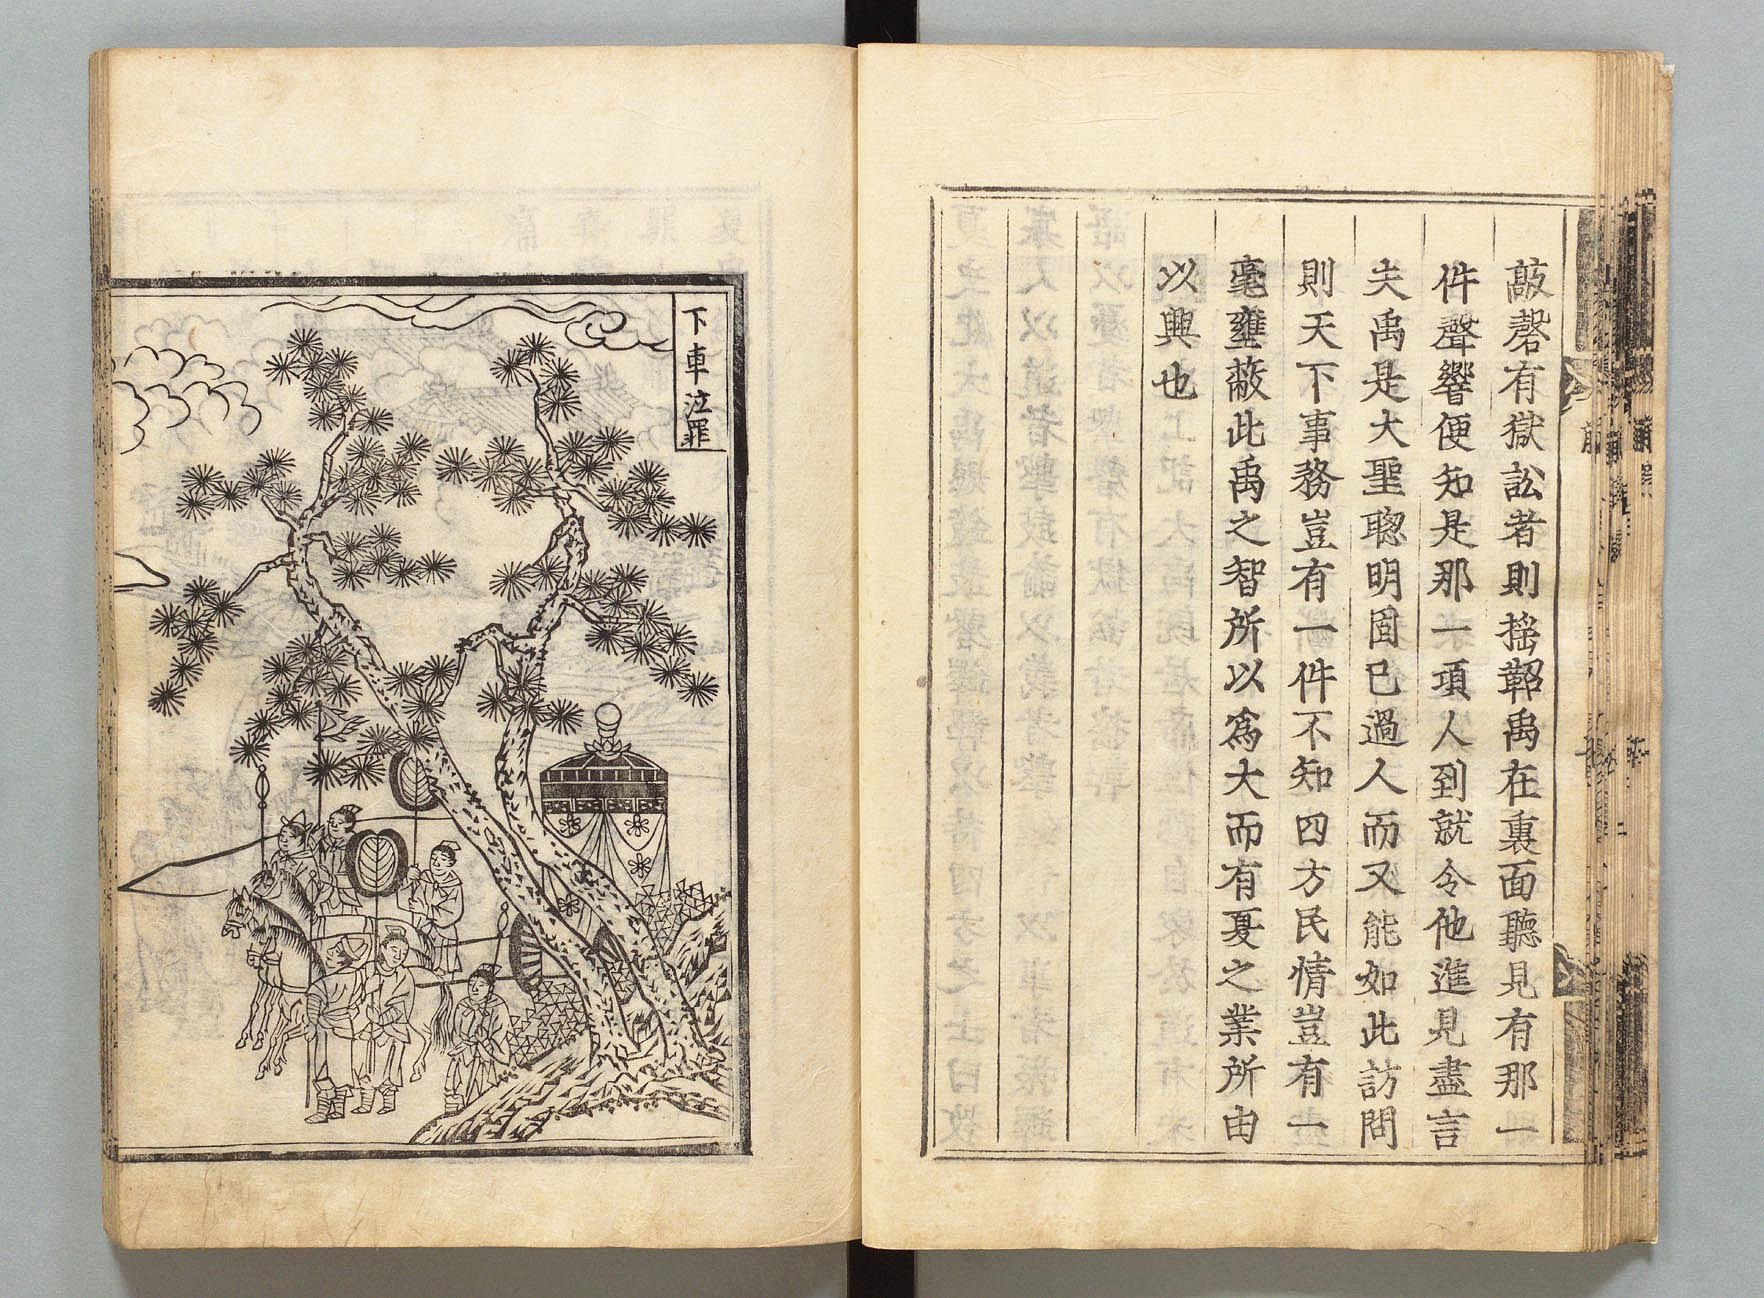 敲磬有獄訟者則搖鞀禹在裏面聽見有那一
件聲響便知是那一項人到就令他進見盡言
夫禹是大聖聰明固已過人而又能如此訪問
則天下事務豈有一件不知四方民情豈有一
毫壅蔽此禹之智所以爲大而有夏之業所由
以興也
下車泣罪